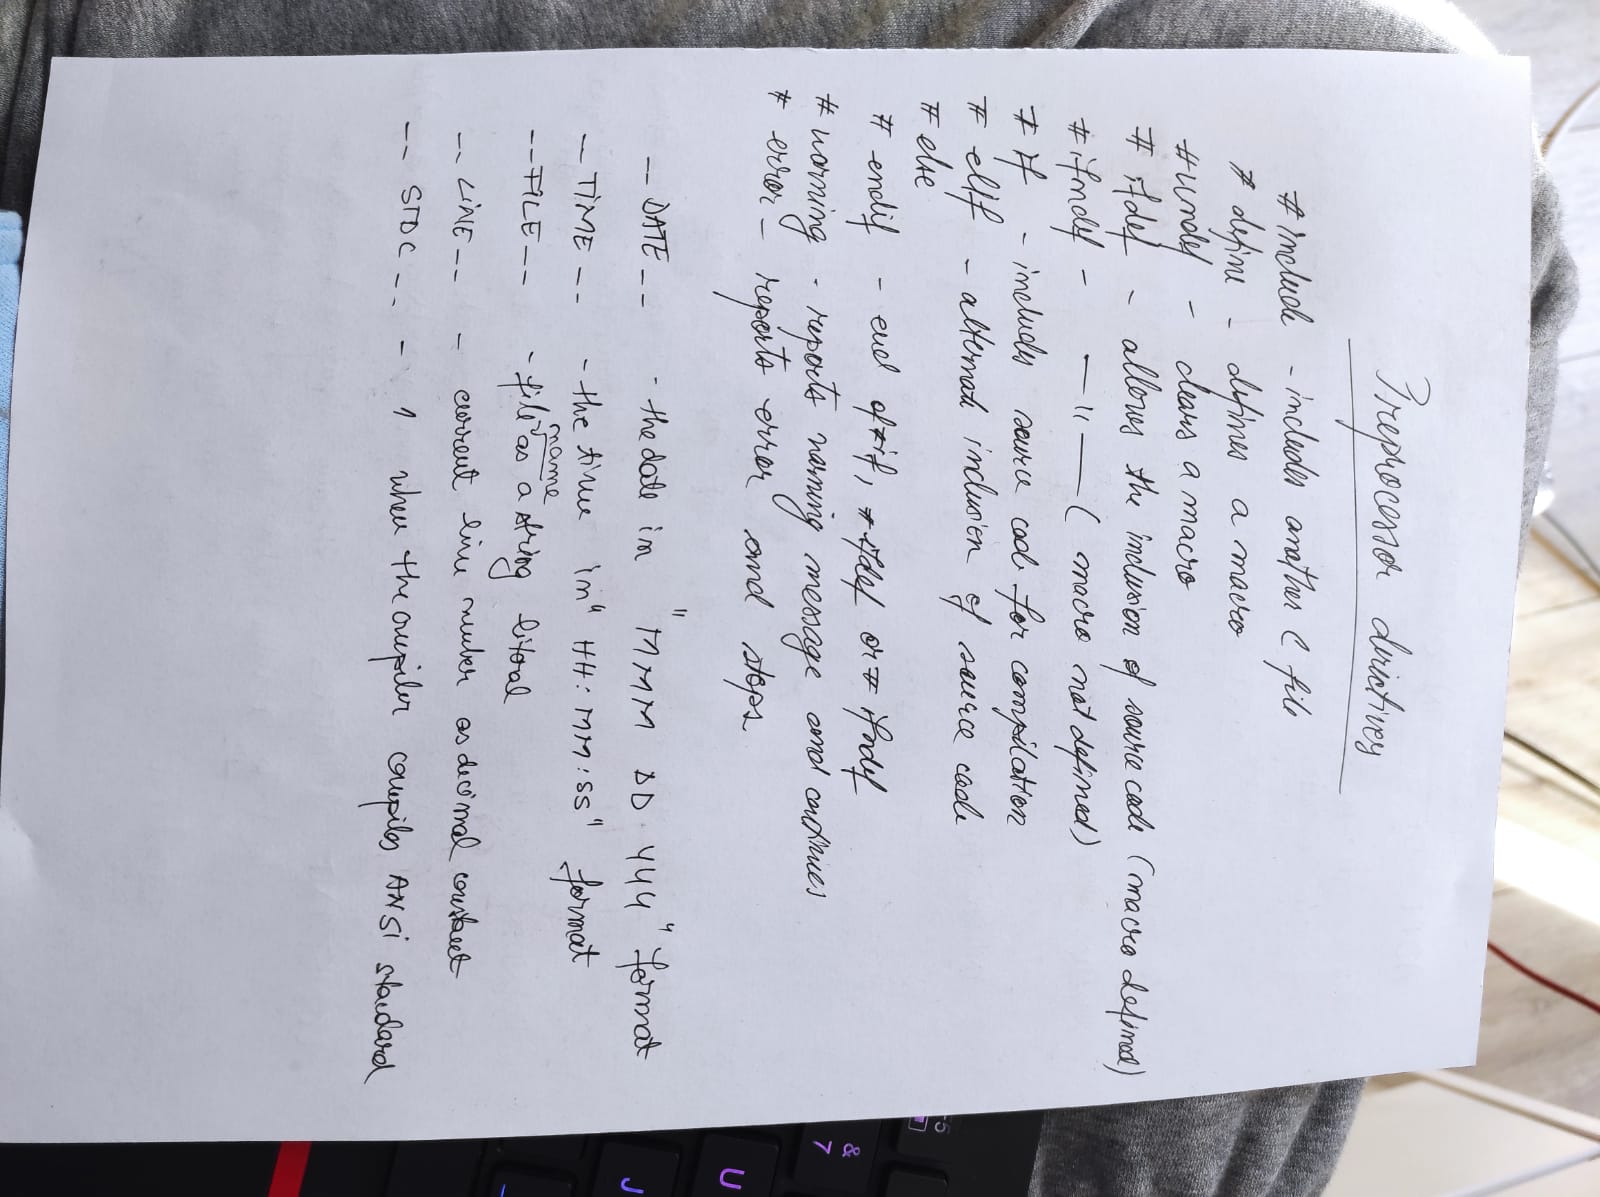 Preprocessor directives
#include - includes another C file
# define - defines a macro
#undef - clears a macro
# ifdef - allows the inclusion of source code (macro defined)
# ifndef - —"— ( macro not defined)
# if - includes source code for compilation
# elif - alternate inclusion of source code
# else
# endif - end of #if, #ifdef or # ifndef
# warning - reports warning message and continues
# error - reports error and stops
-- DATE -- - the date in "MMM DD YYY" format
— TIME -- - the time in "HH:MM:SS" format
name
--FILE-- - file as a string literal
-- LINE -- - current line number as decimal constant
-- STDC -- - 1 when the compiler compiles ANSI standard
F5
&
7
U
J